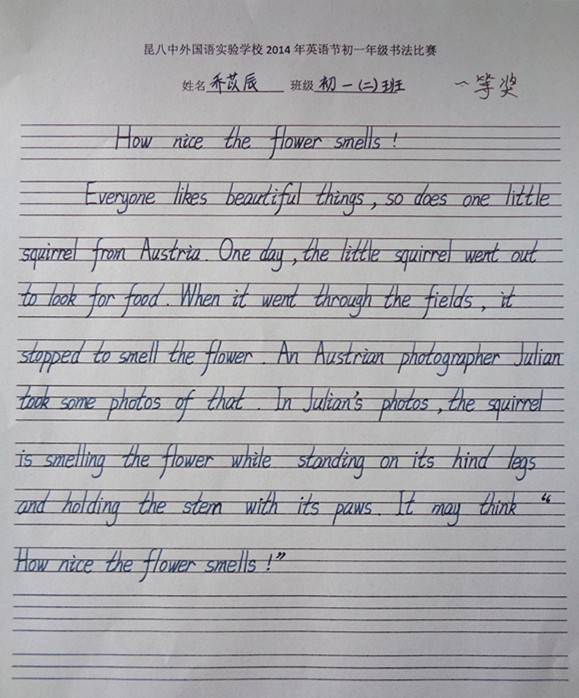 昆八中外国语实验学校2014年英语节初一年级书法比赛
姓名 乔苡辰 班级 初一(二)班 一等奖
How nice the flower smells!
Everyone likes beautiful things, so does one little
squirrel from Austria. One day, the little squirrel went out
to look for food. When it went through the fields, it
stopped to smell the flower. An Austrian photographer Julian
took some photos of that. In Julian's photos, the squirrel
is smelling the flower while standing on its hind legs
and holding the stem with its paws. It may think "
How nice the flower smells!"